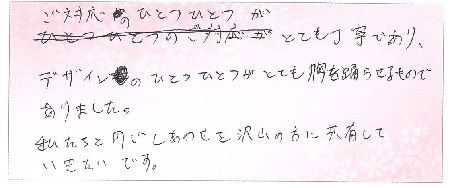 ご対応のひとつひとつが
ひとつひとつのご対応がとても丁寧であり、
デザインのひとつひとつがとても胸を踊らせるもので
ありました。
私たちと同じしあわせを沢山の方に共有して
いきたいです。